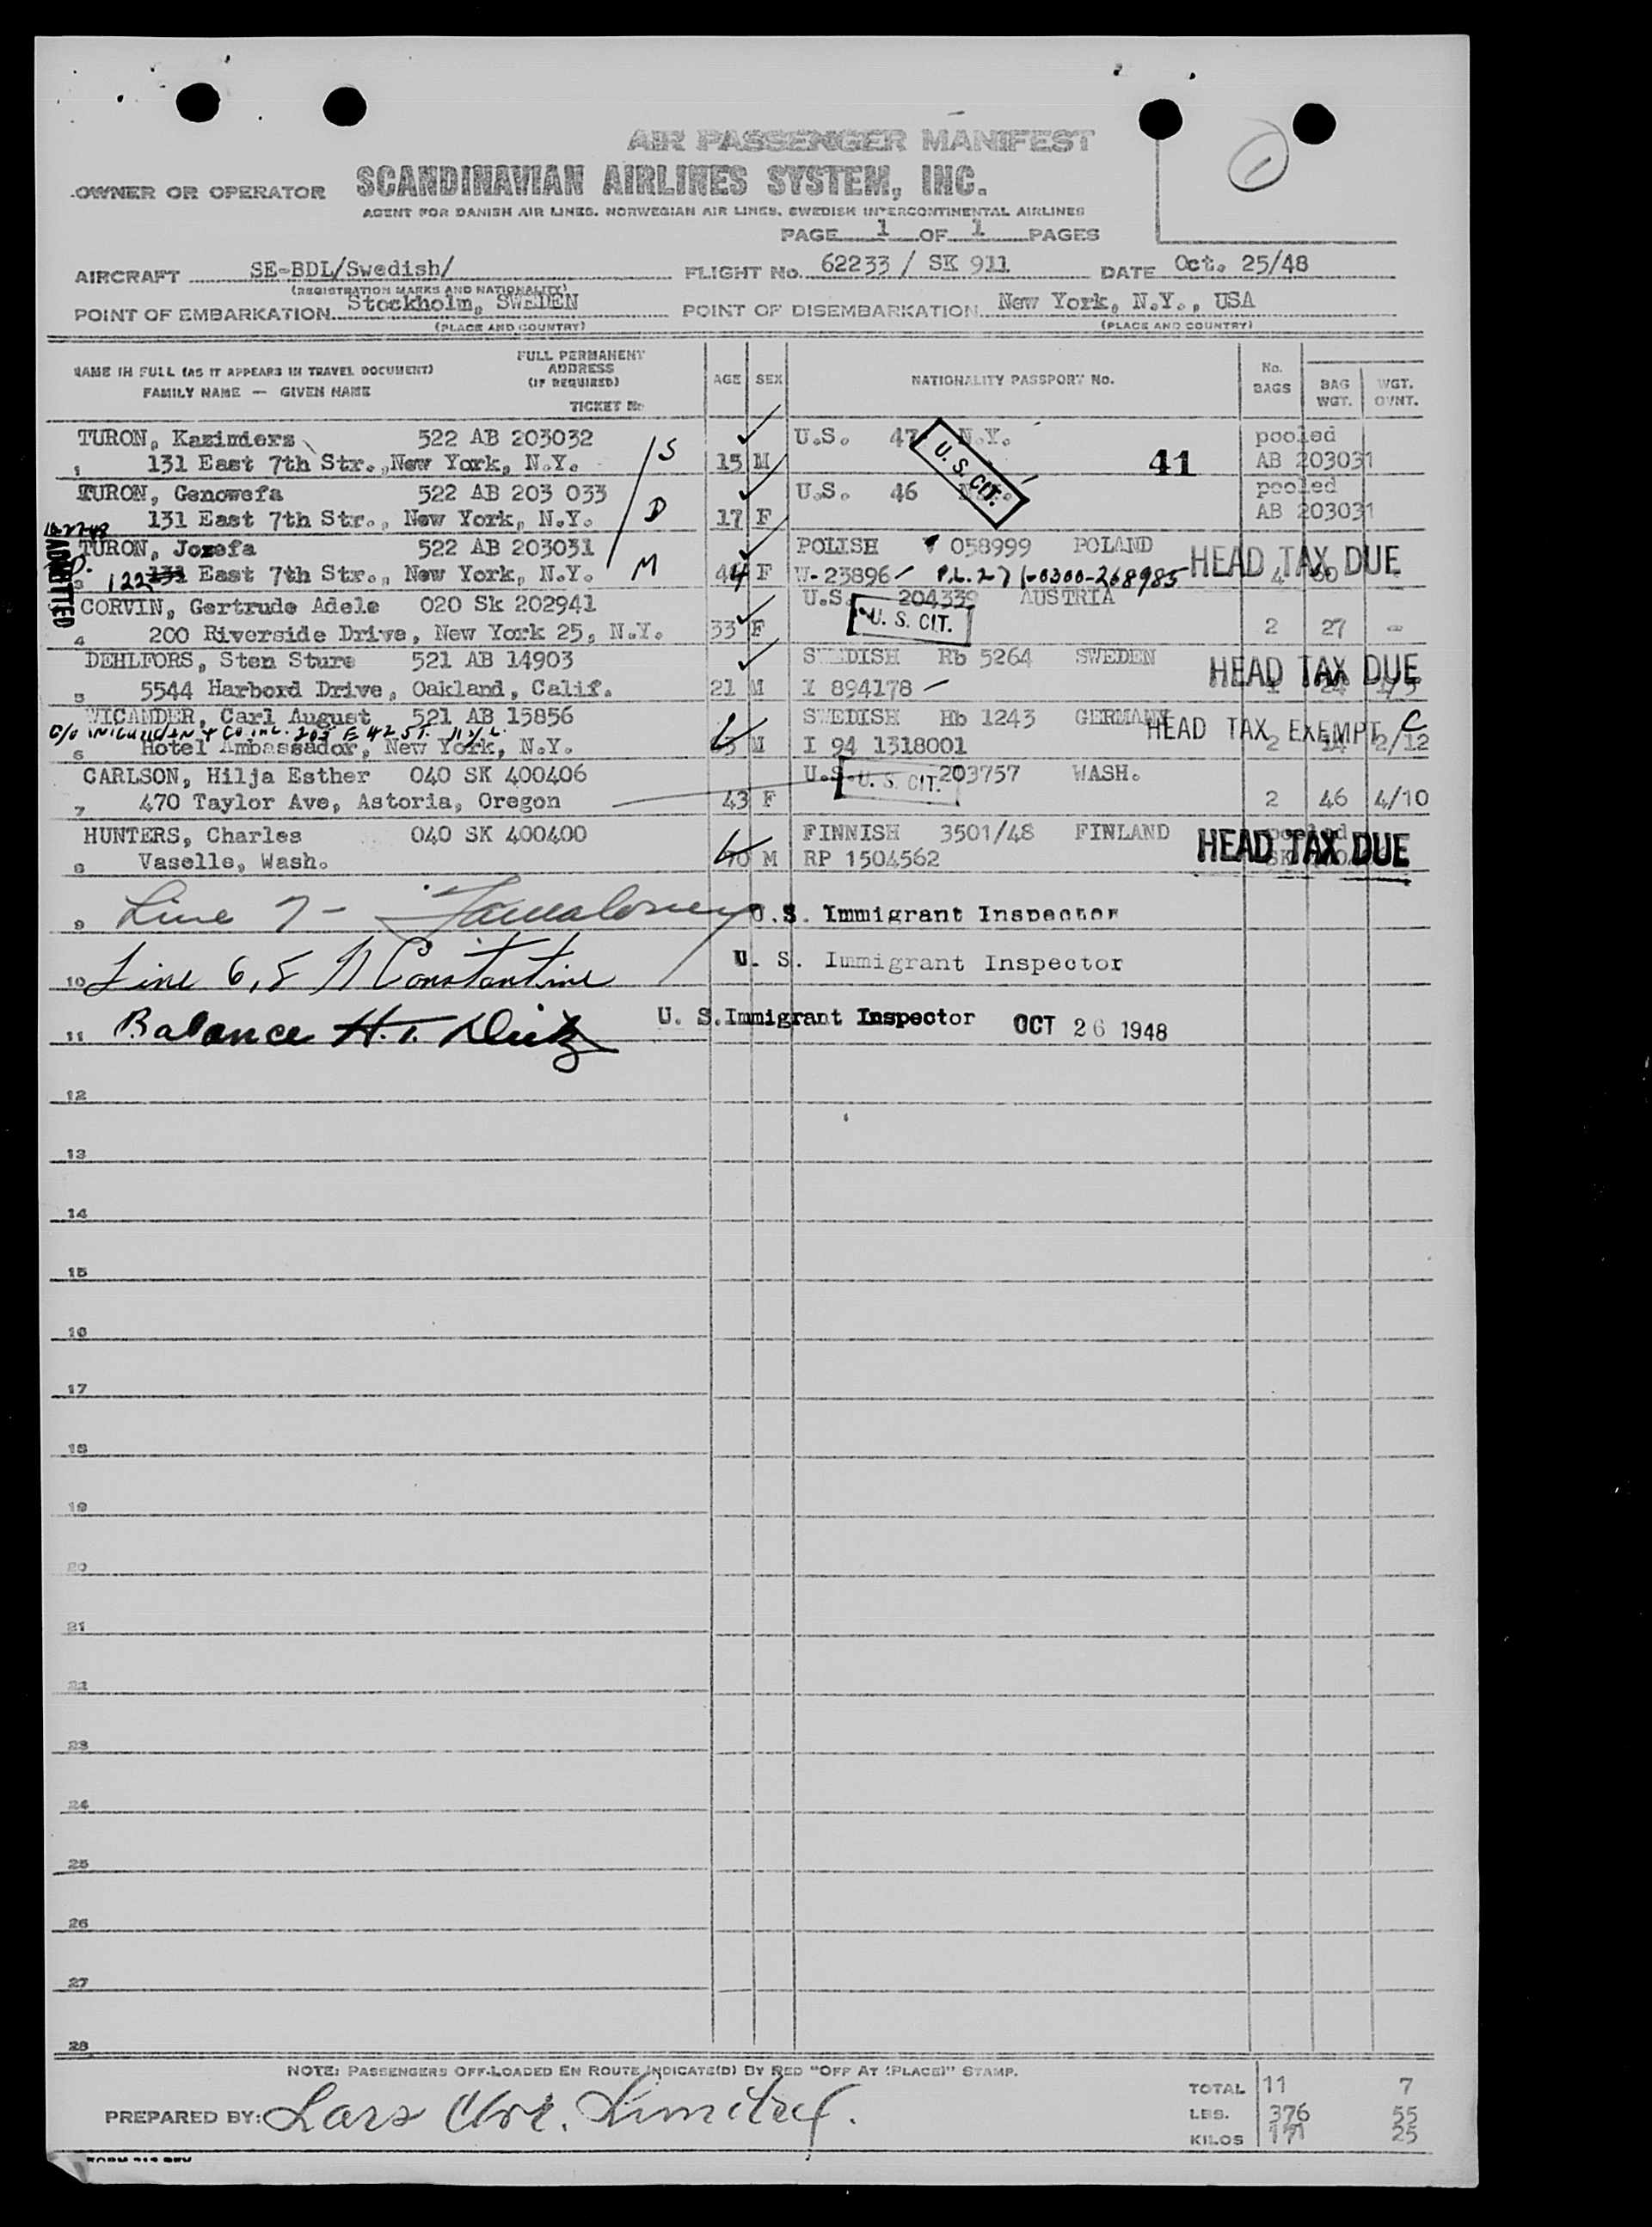 1
AIR PASSENGER MANIFEST
OWNER OR OPERATOR SCANDINAVIAN AIRLINES SYSTEM, INC.
AGENT FOR DANISH AIR LINES, NORWEGIAN AIR LINES, SWEDISH INTERCONTINENTAL AIRLINES
PAGE 1 OF 1 PAGES
AIRCRAFT SE-BDL/Swedish/ FLIGHT No. 62233 / SK 911 DATE Oct. 25/48
(REGISTRATION MARKS AND NATIONALITY)
POINT OF EMBARKATION Stockholm, SWEDEN POINT OF DISEMBARKATION New York, N.Y., USA
(PLACE AND COUNTRY) (PLACE AND COUNTRY)
NAME IN FULL (AS IT APPEARS IN TRAVEL DOCUMENT) FULL PERMANENT ADDRESS (IF REQUIRED) AGE SEX NATIONALITY PASSPORT No. No. BAGS BAG WGT. WGT. OVNT.
FAMILY NAME — GIVEN NAME TICKET No
TURON, Kazimiers 522 AB 203032 S U.S. 47 N.Y. U. S. CIT. pooled
1 131 East 7th Str., New York, N.Y. 15 M 41 AB 203031
TURON, Genowefa 522 AB 203 033 U.S. 46 pooled
131 East 7th Str., New York, N.Y. D 17 F AB 203031
ADMITTED
TURON, Jozefa 522 AB 203031 POLISH 058999 POLAND HEAD TAX DUE
3 122 131 East 7th Str., New York, N.Y. M 44 F W-23896 P.L. 271-0300-268985 4
CORVIN, Gertrude Adele 020 Sk 202941 U.S. 204339 AUSTRIA
4 200 Riverside Drive, New York 25, N.Y. 33 F U. S. CIT. 2 27 -
DEHLFORS, Sten Sture 521 AB 14903 SWEDISH Rb 5264 SWEDEN HEAD TAX DUE
5 5544 Harbord Drive, Oakland, Calif. 21 M I 894178
WICANDER, Carl August 521 AB 15856 SWEDISH Hb 1243 GERMANY HEAD TAX EXEMPT C
c/o 203 E 42 ST. N.Y.
6 Hotel Ambassador, New York, N.Y. M I 94 1318001 2 14 2/12
CARLSON, Hilja Esther 040 SK 400406 U.S. U. S. CIT. 203757 WASH.
7 470 Taylor Ave, Astoria, Oregon 43 F 2 46 4/10
HUNTERS, Charles 040 SK 400400 FINNISH 3501/48 FINLAND HEAD TAX DUE
8 Vaselle, Wash. 70 M RP 1504562
9 Line 7 - U.S. Immigrant Inspector
10 Line 6, 8 N Constantine U. S. Immigrant Inspector
11 Balance H.T. U. S. Immigrant Inspector OCT 26 1948
12
13
14
15
16
17
18
19
20
21
22
23
24
25
26
27
28
NOTE: PASSENGERS OFF-LOADED EN ROUTE INDICATE(D) BY RED "OFF AT (PLACE)" STAMP.
TOTAL 11 7
PREPARED BY: Lars
LBS. 376 55
KILOS 171 25